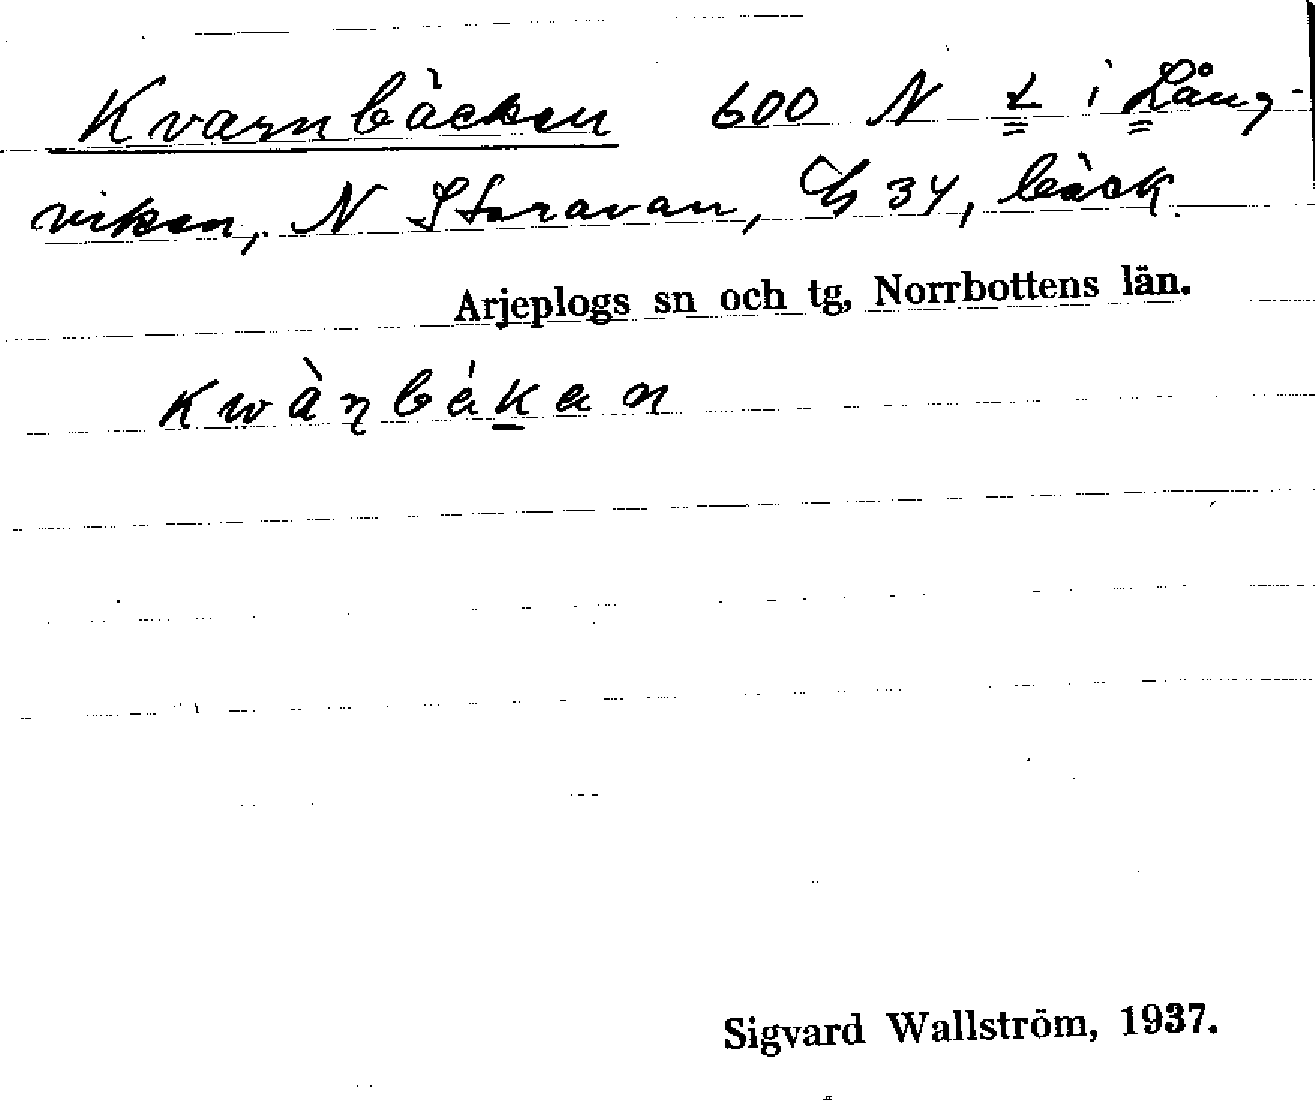 Kvarnbäcken 600 N L i Lång-
viken, N Storavan, 34, bäck.
Arjeplogs sn och tg, Norrbottens län.
kwàɳbákan
Sigvard Wallström, 1937.